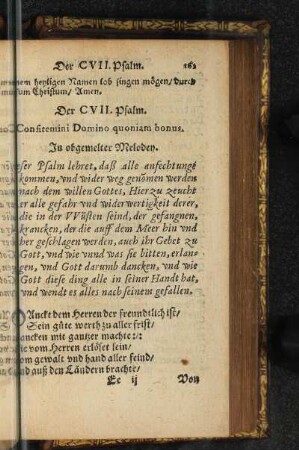 Der CVII. Psalm. 162
heyligen Namen lob singen mögen/ durch
Christum/ Amen.
Der CVII. Psalm.
Confitemini Domino quoniam bonus.
In obgemelter Melodey.
Psalm lehret, daß alle anfechtunge
kommen, vnd wider weg genommen werden
nach dem willen Gottes, Hierzu zeucht
er alle gefahr vnd widerwertigkeit derer,
die in der VVüsten seind, der gefangnen,
krancken, der die auff dem Meer hin vnd
her geschlagen werden, auch ihr Gebet zu
Gott, vnd wie vnnd was sie bitten, erlan-
gen, vnd Gott darumb dancken, vnd wie
Gott diese ding alle in seiner Handt hat,
vnd wendt es alles nach seinem gefallen.
DAncket dem Herren der freundtlich ist/
Sein güte werth zu aller frist/
dancken mit gantzer machte:/:
die vom Herren erlöset sein/
vom gewalt vnd hand aller feind/
auß den Ländern brachte/
Ee ij Von